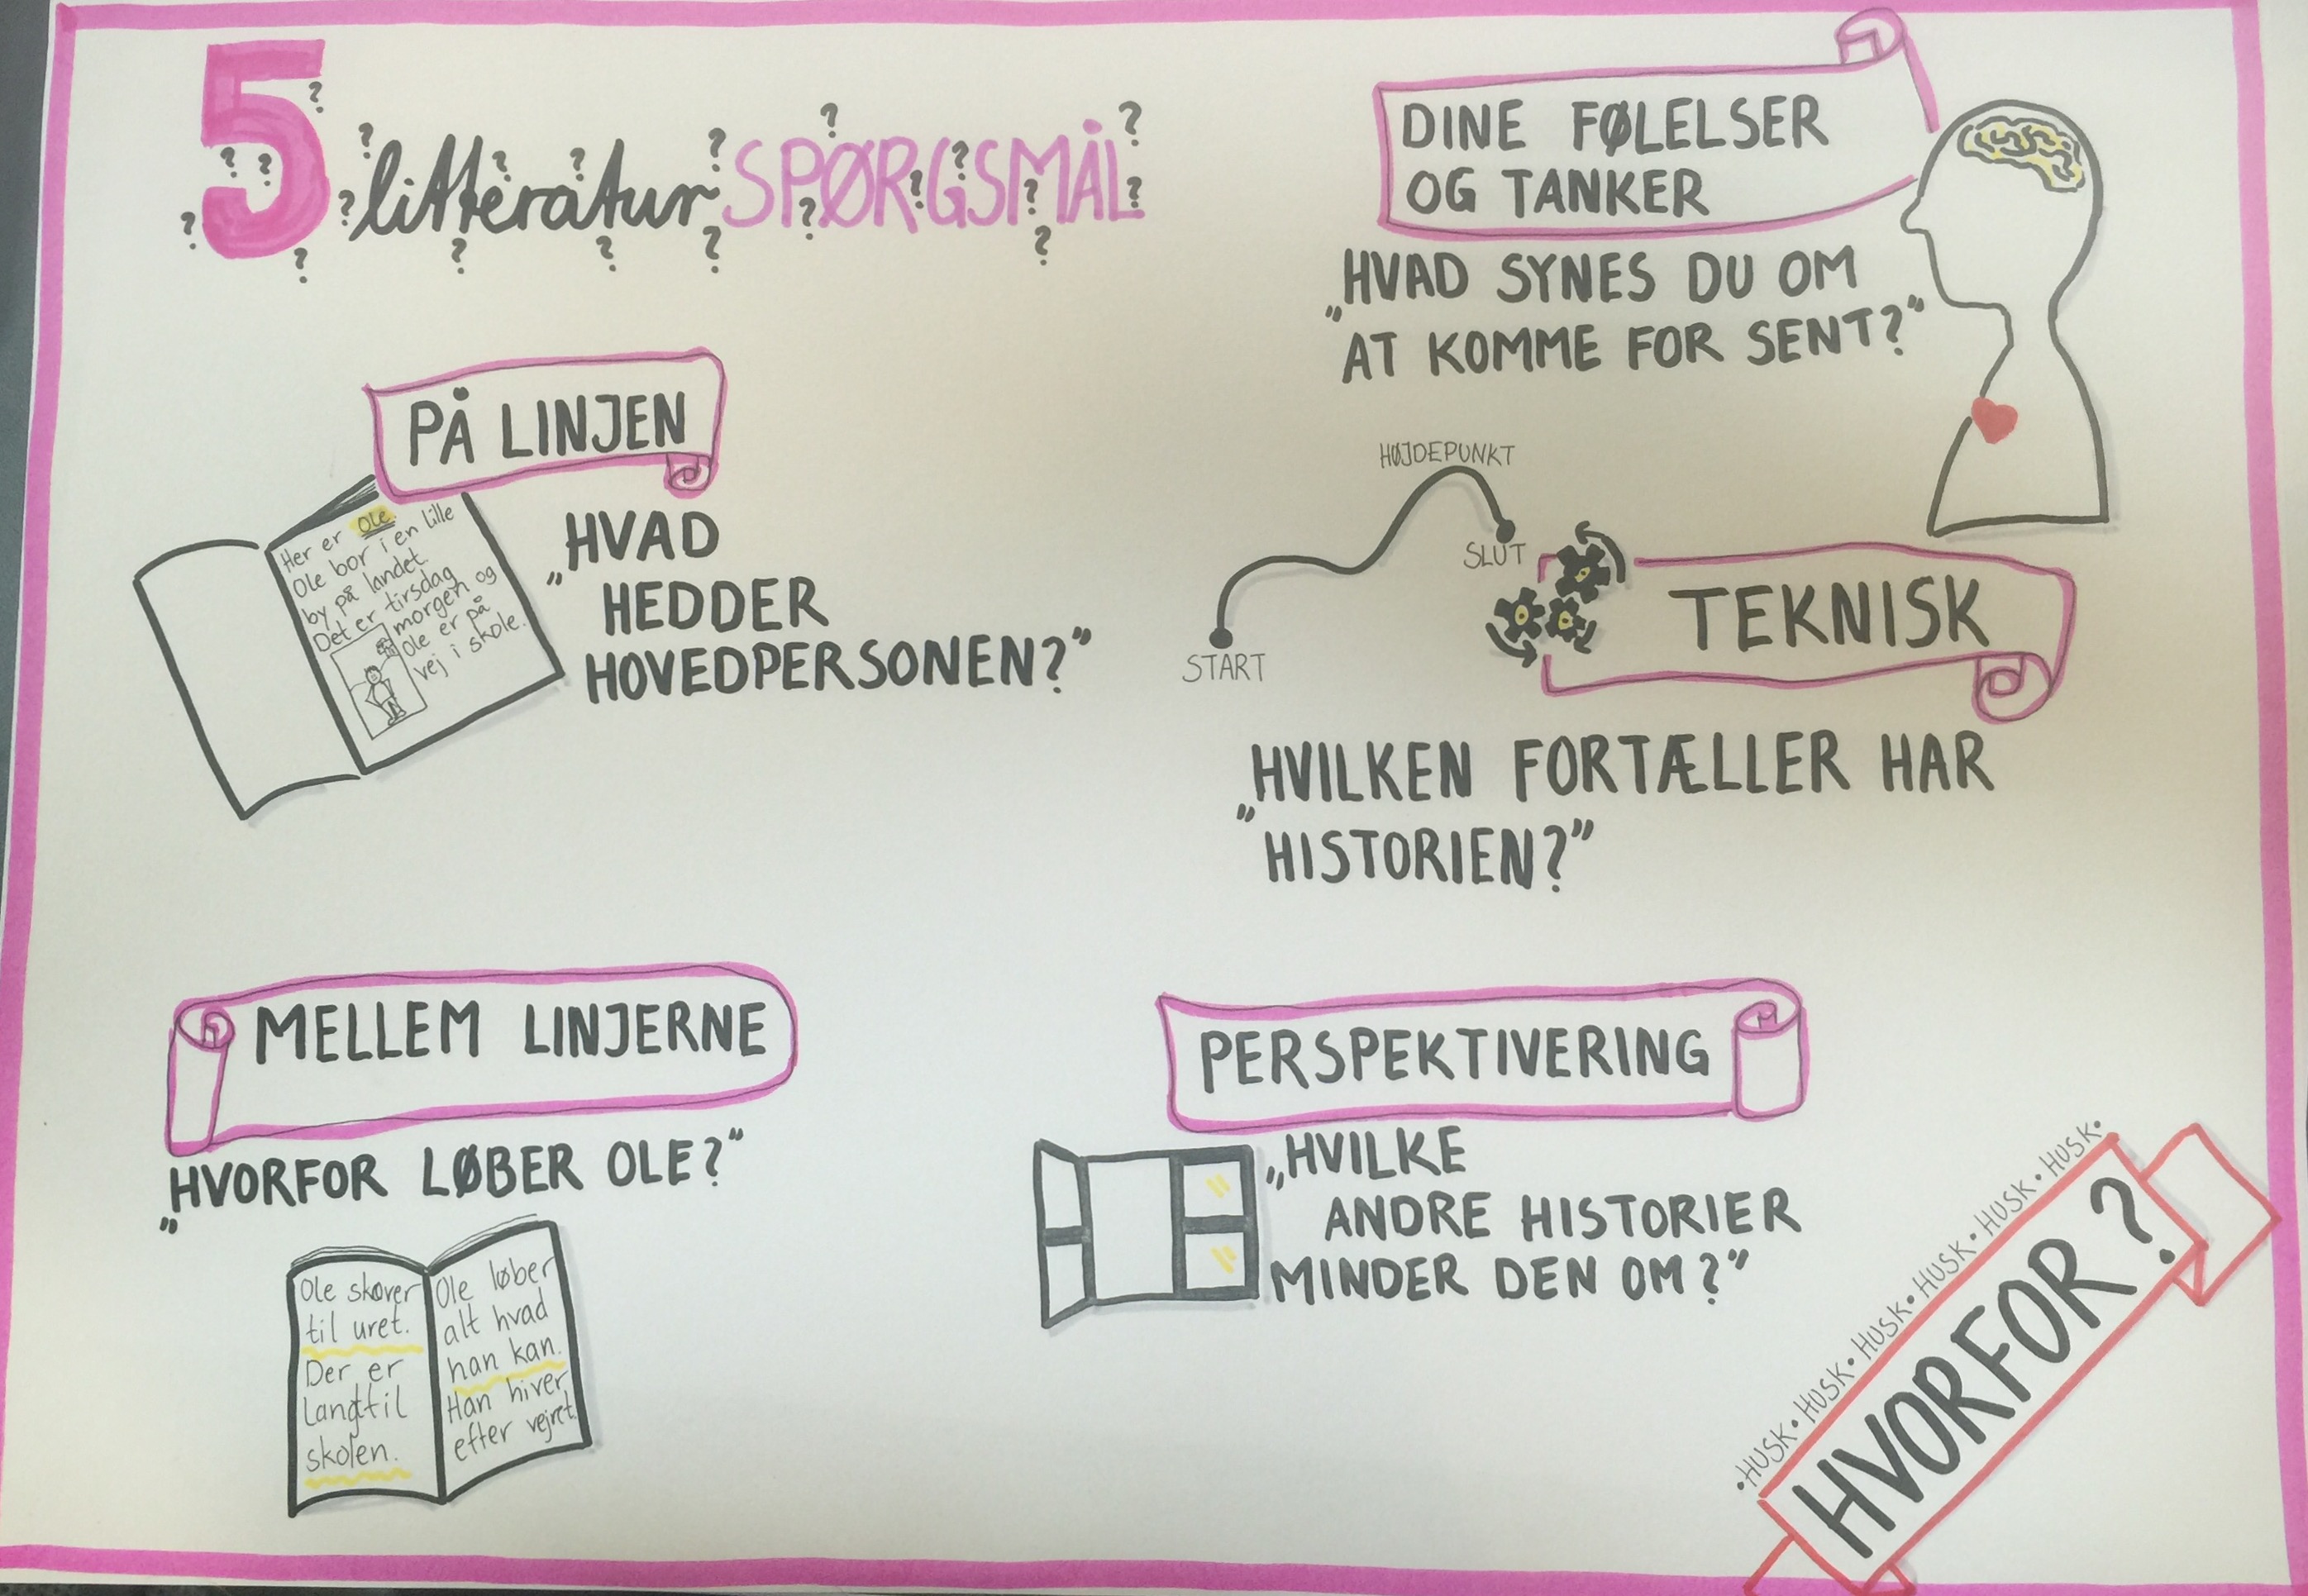 5 litteratur SPØRGSMÅL
PÅ LINJEN
Her er Ole.
Ole bor i en lille
by på landet
Det er tirsdag
morgen og
Ole er på
vej i skole.
„HVAD
HEDDER
HOVEDPERSONEN?”
MELLEM LINJERNE
„HVORFOR LØBER OLE?”
Ole skæver
til uret.
Der er
langt til
skolen.
Ole løber
alt hvad
han kan.
Han hiver
efter vejret.
DINE FØLELSER
OG TANKER
„HVAD SYNES DU OM
AT KOMME FOR SENT?”
HØJDEPUNKT
SLUT
START
TEKNISK
„HVILKEN FORTÆLLER HAR
HISTORIEN?”
PERSPEKTIVERING
„HVILKE
ANDRE HISTORIER
MINDER DEN OM?”
•HUSK•HUSK•HUSK•HUSK•HUSK•HUSK•
HVORFOR?